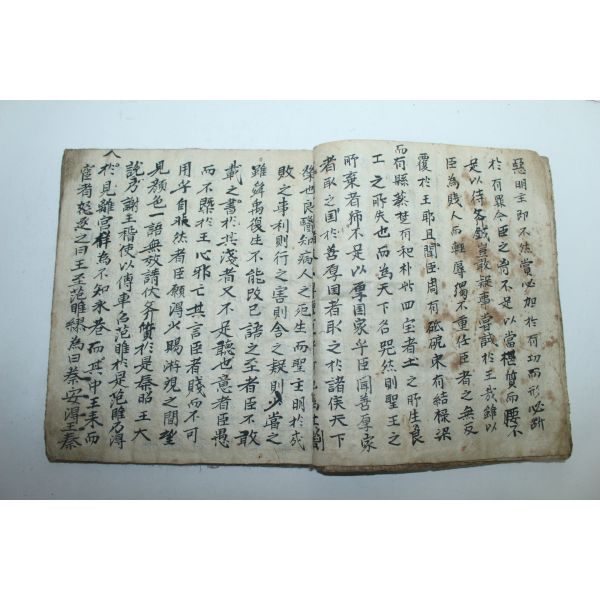 惡明主則不然賞必加於有功而形必斷
於有罪今臣之胷不足以當椹質而腰不
足以侍斧鉞豈敢疑事嘗試於王哉雖以
臣為賤人而輕辱獨不重任臣者之無反
覆於王耶且聞臣周有砥砨宋有結綠梁
而有縣藜楚有和朴此四宝者土之所生良
工之所失也而為天下名咒然則聖王之
所棄者独不足以厚国家乎臣聞善厚家
者取之国於善厚国者取之於諸侯天下
榮也良醫知病人之死生而聖主明於成
敗之事利則行之害則舍之疑則少嘗之
雖舜禹復生不能改已語之至者臣不敢
載之書於其淺者又不足聽也意者臣愚
而不槩於王心邪亡其言臣者賤而不可
用乎自非然者臣願得少賜游観之間望
見顔色一語無效請伏斧質於是秦昭王大
說乃謝王稽使以傳車召范睢於是范睢乃得
入於見離宮佯為不知永巷而其中王来而
宦者怒逐之曰王至范睢繆為曰秦安得王秦